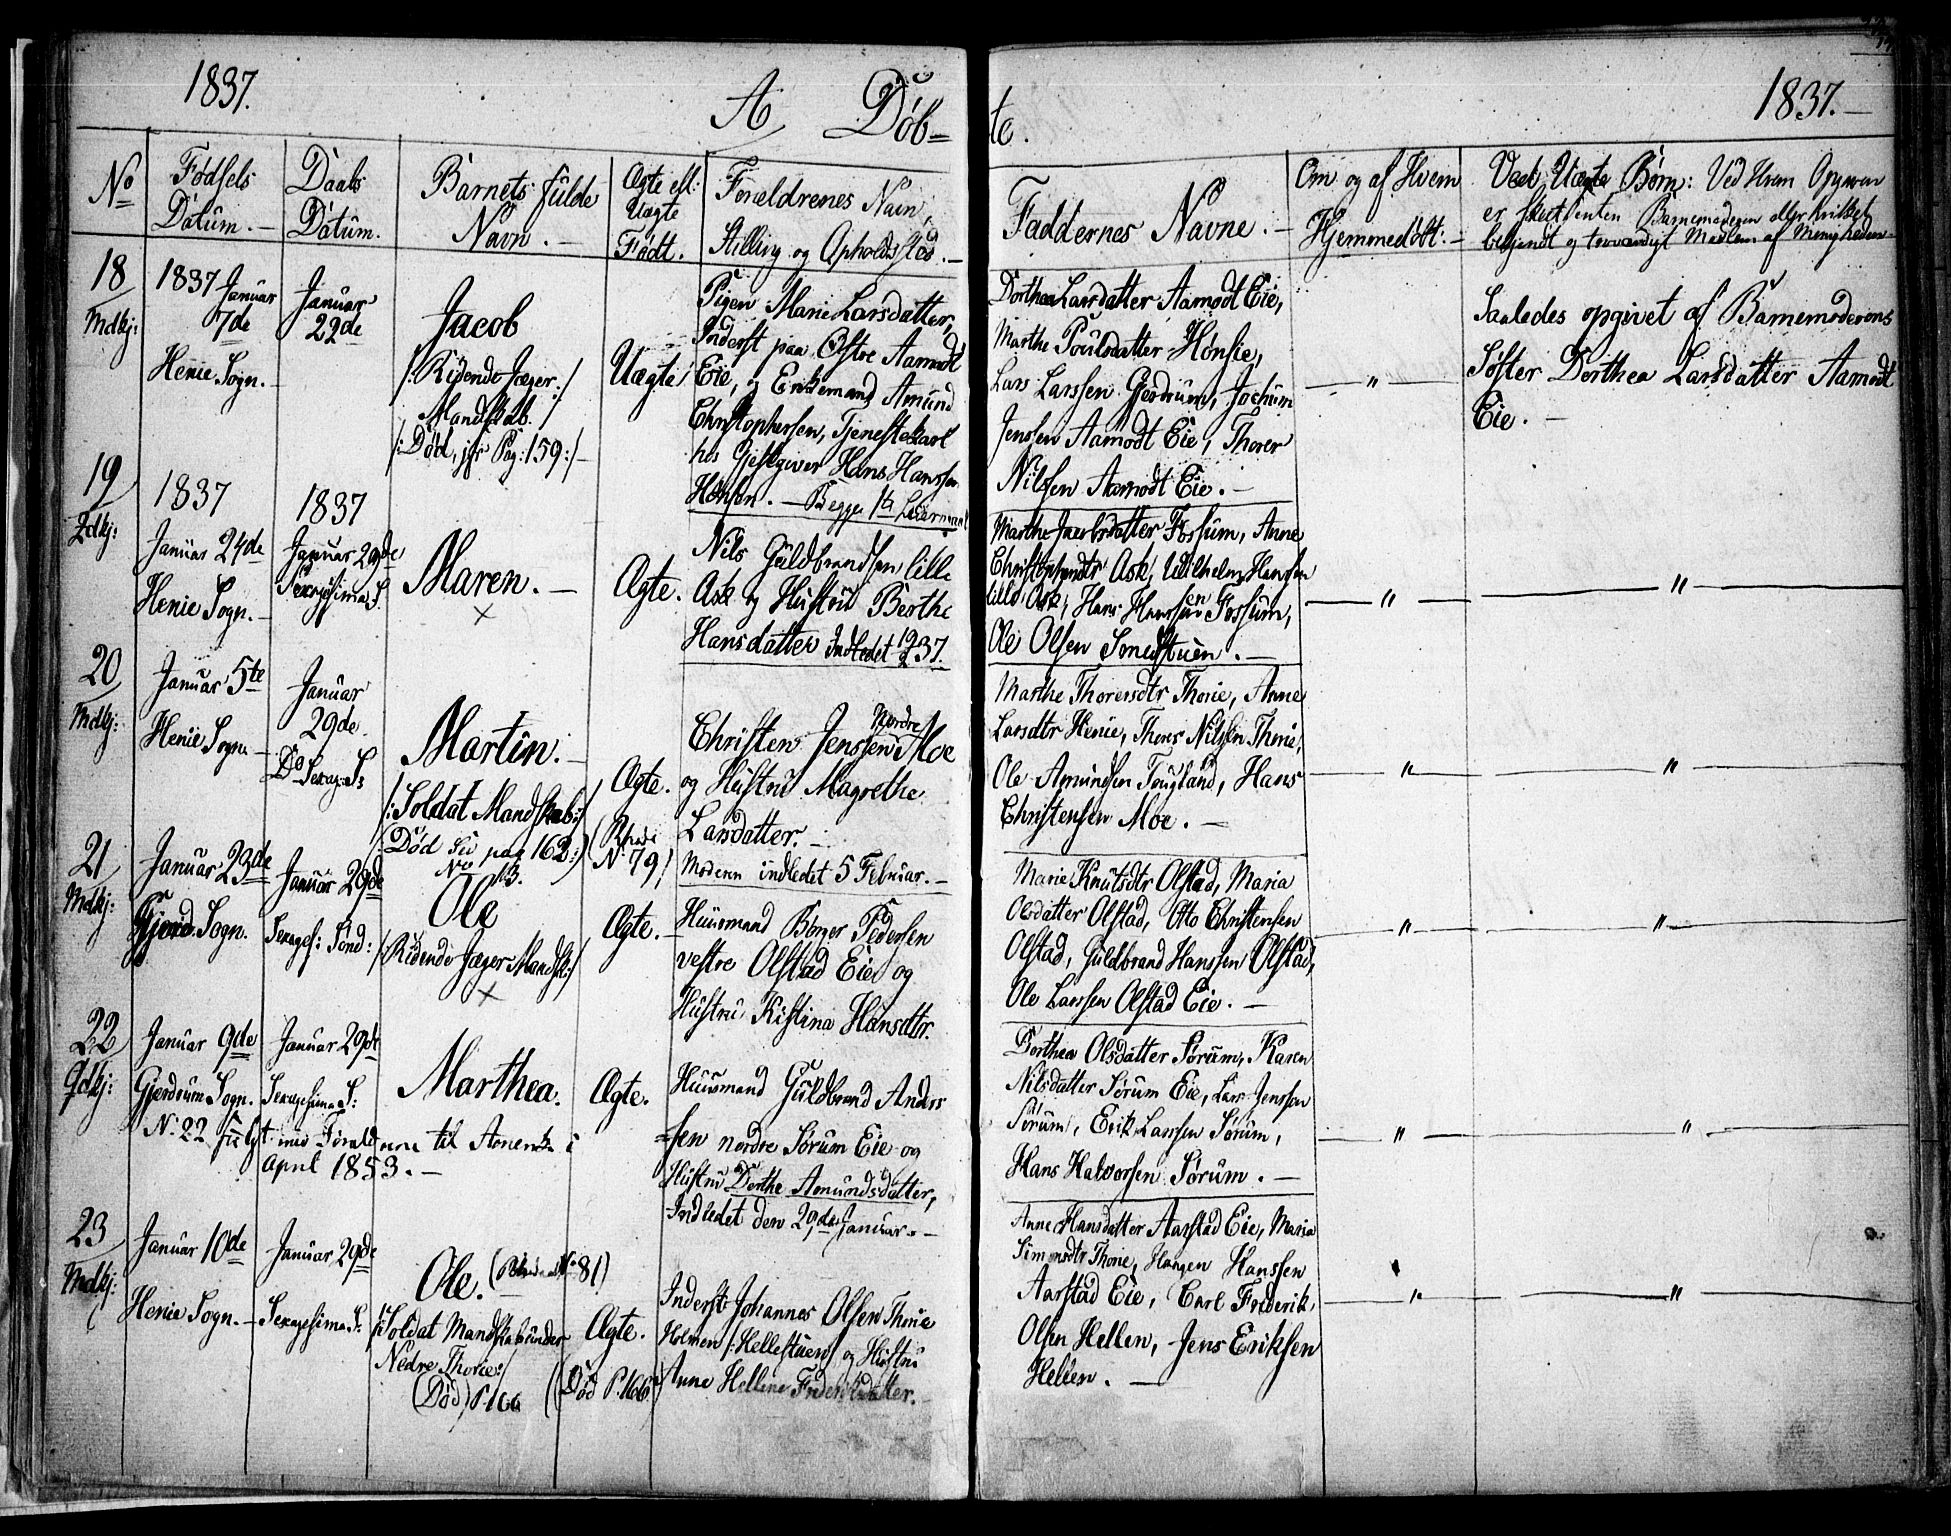 1837.
A Döb=
te.
1837.—
No
Fødsels Datum.—
Daabs Datum.
Barnets fulde Navn.—
Ægte ell: Uægte Født.
Forældrenes Navn, Stilling og Opholdssted.—
Faddernes Navne.—
Om og af Hvem Hjemmedøbt:—
Ved Uægte Børn: Ved Hvem Opgaven
er skeet, enten Barnemoderen eller hvilket
bekjendt og troværdigt Medlem af Menigheden
18
Mdkj:
1837 Januar
7de
Henie Sogn.—
Januar
22de
Jacob
/:Ridende Jæger:/
Mandskab.
/:Død, jfr Pag: 159:/—
Uægte
Pigen Marie Larsdatter,
Inderst paa Østre Aamodt
Eie, og Enkemand Amund
Christophersen, Tjenestekarl
hos Gjestgiver Hans Hanssen
Hønsen.— Begges 1ste Leiermaal
Dorthea Larsdatter Aamodt Eie,
Marthe Poulsdatter Hønsie,
Lars Larssen Gjerdrum, Jochum
Jenssen Aamodt Eie, Thorer
Nilssen Aamodt Eie.—
— " —
Saaledes opgivet af Barnemoderens
Søster Dorthea Larsdatter Aamodt
Eie.—
19
Qdkj:
1837
Januar 24de
Henie Sogn.—
1837
Januar 29de
Sexagesima S.
Maren.—
×
Ægte.
Nils Guldbrandsen lille
Ask og Hustru Berthe
Hansdatter Indledet 19/2 37.
Marthe Jacobsdatter Fossum, Anne
Christophersdtr Ask, Wilhelm Hanssen
lille Ask, Hans Hanssen Fossum,
Ole Olsen Smedstuen.—
— " —
"
20
Mdkj:
Januar 5te
Henie Sogn.—
Januar
29de.
Do Sexag: S:
Martin.—
/:Soldat Mandskab:/
Død See pag 162:/
No 13.
Ægte.
No 79
Christen Jenssen Nordre Moe
og Hustru Magrethe
Larsdatter.—
Moderen indledet 5 Februar.—
Marthe Thorersdtr Thorie, Anne
Larsdtr Henie, Thorer Nilssen Thorie,
Ole Amundsen Fougland, Hans
Christensen Moe.—
— " —
"
21
Mdkj:
Januar 23de
Gjerd. Sogn.
Januar 29de
Sexages: Sønd:
Ole
/:Ridende Jæger Mandsk:/
×
Ægte.—
Huusmand Børger Pedersen
vestre Olstad Eie og
Hustru Kistina Hansdtr.
Marie Knutsdtr Olstad, Maria
Olsdatter Olstad, Otto Christensen
Olstad, Guldbrand Hanssen Olstad,
Ole Larssen Olstad Eie.—
"
"
22
Qdkj:
Januar 9de
Gjerdrum Sogn.
Januar 29de
Sexagesima S:
Marthea.
Ægte.
No 22 fulgt med Forældrene til Amerika i
April 1853.—
Huusmand Guldbrand Anders
=sen nordre Sørum Eie og
Hustru Dorthe Amundsdatter,
Indledet den 29de Januar.—
Dorthea Olsdatter Sørum, Karen
Nilsdatter Sørum Eie, Lars Jenssen
Sørum, Erik Larssen Sørum,
Hans Halvorsen Sørum.—
— " —
"
23
Mdkj:
Januar 10de
Henie Sogn.—
Januar 29de
Sexagesima S.
Ole. No 81)
/:Soldat Mandskab under
Nedre Thorie:/
(Død) P. 166
Ægte.
(Død P. 166)
Inderst Johannes Olsen Thorie
Holmen /:Hellestuen/ og Hustru
Anne Hellene Frederiksdatter.—
Anne Hansdatter Aarstad Eie, Maria
Simensdtr Thorie, Haagen Hanssen
Aarstad Eie, Carl Frederik
Olsen Hellen, Jens Eriksen
Hellen.—
— " —
"